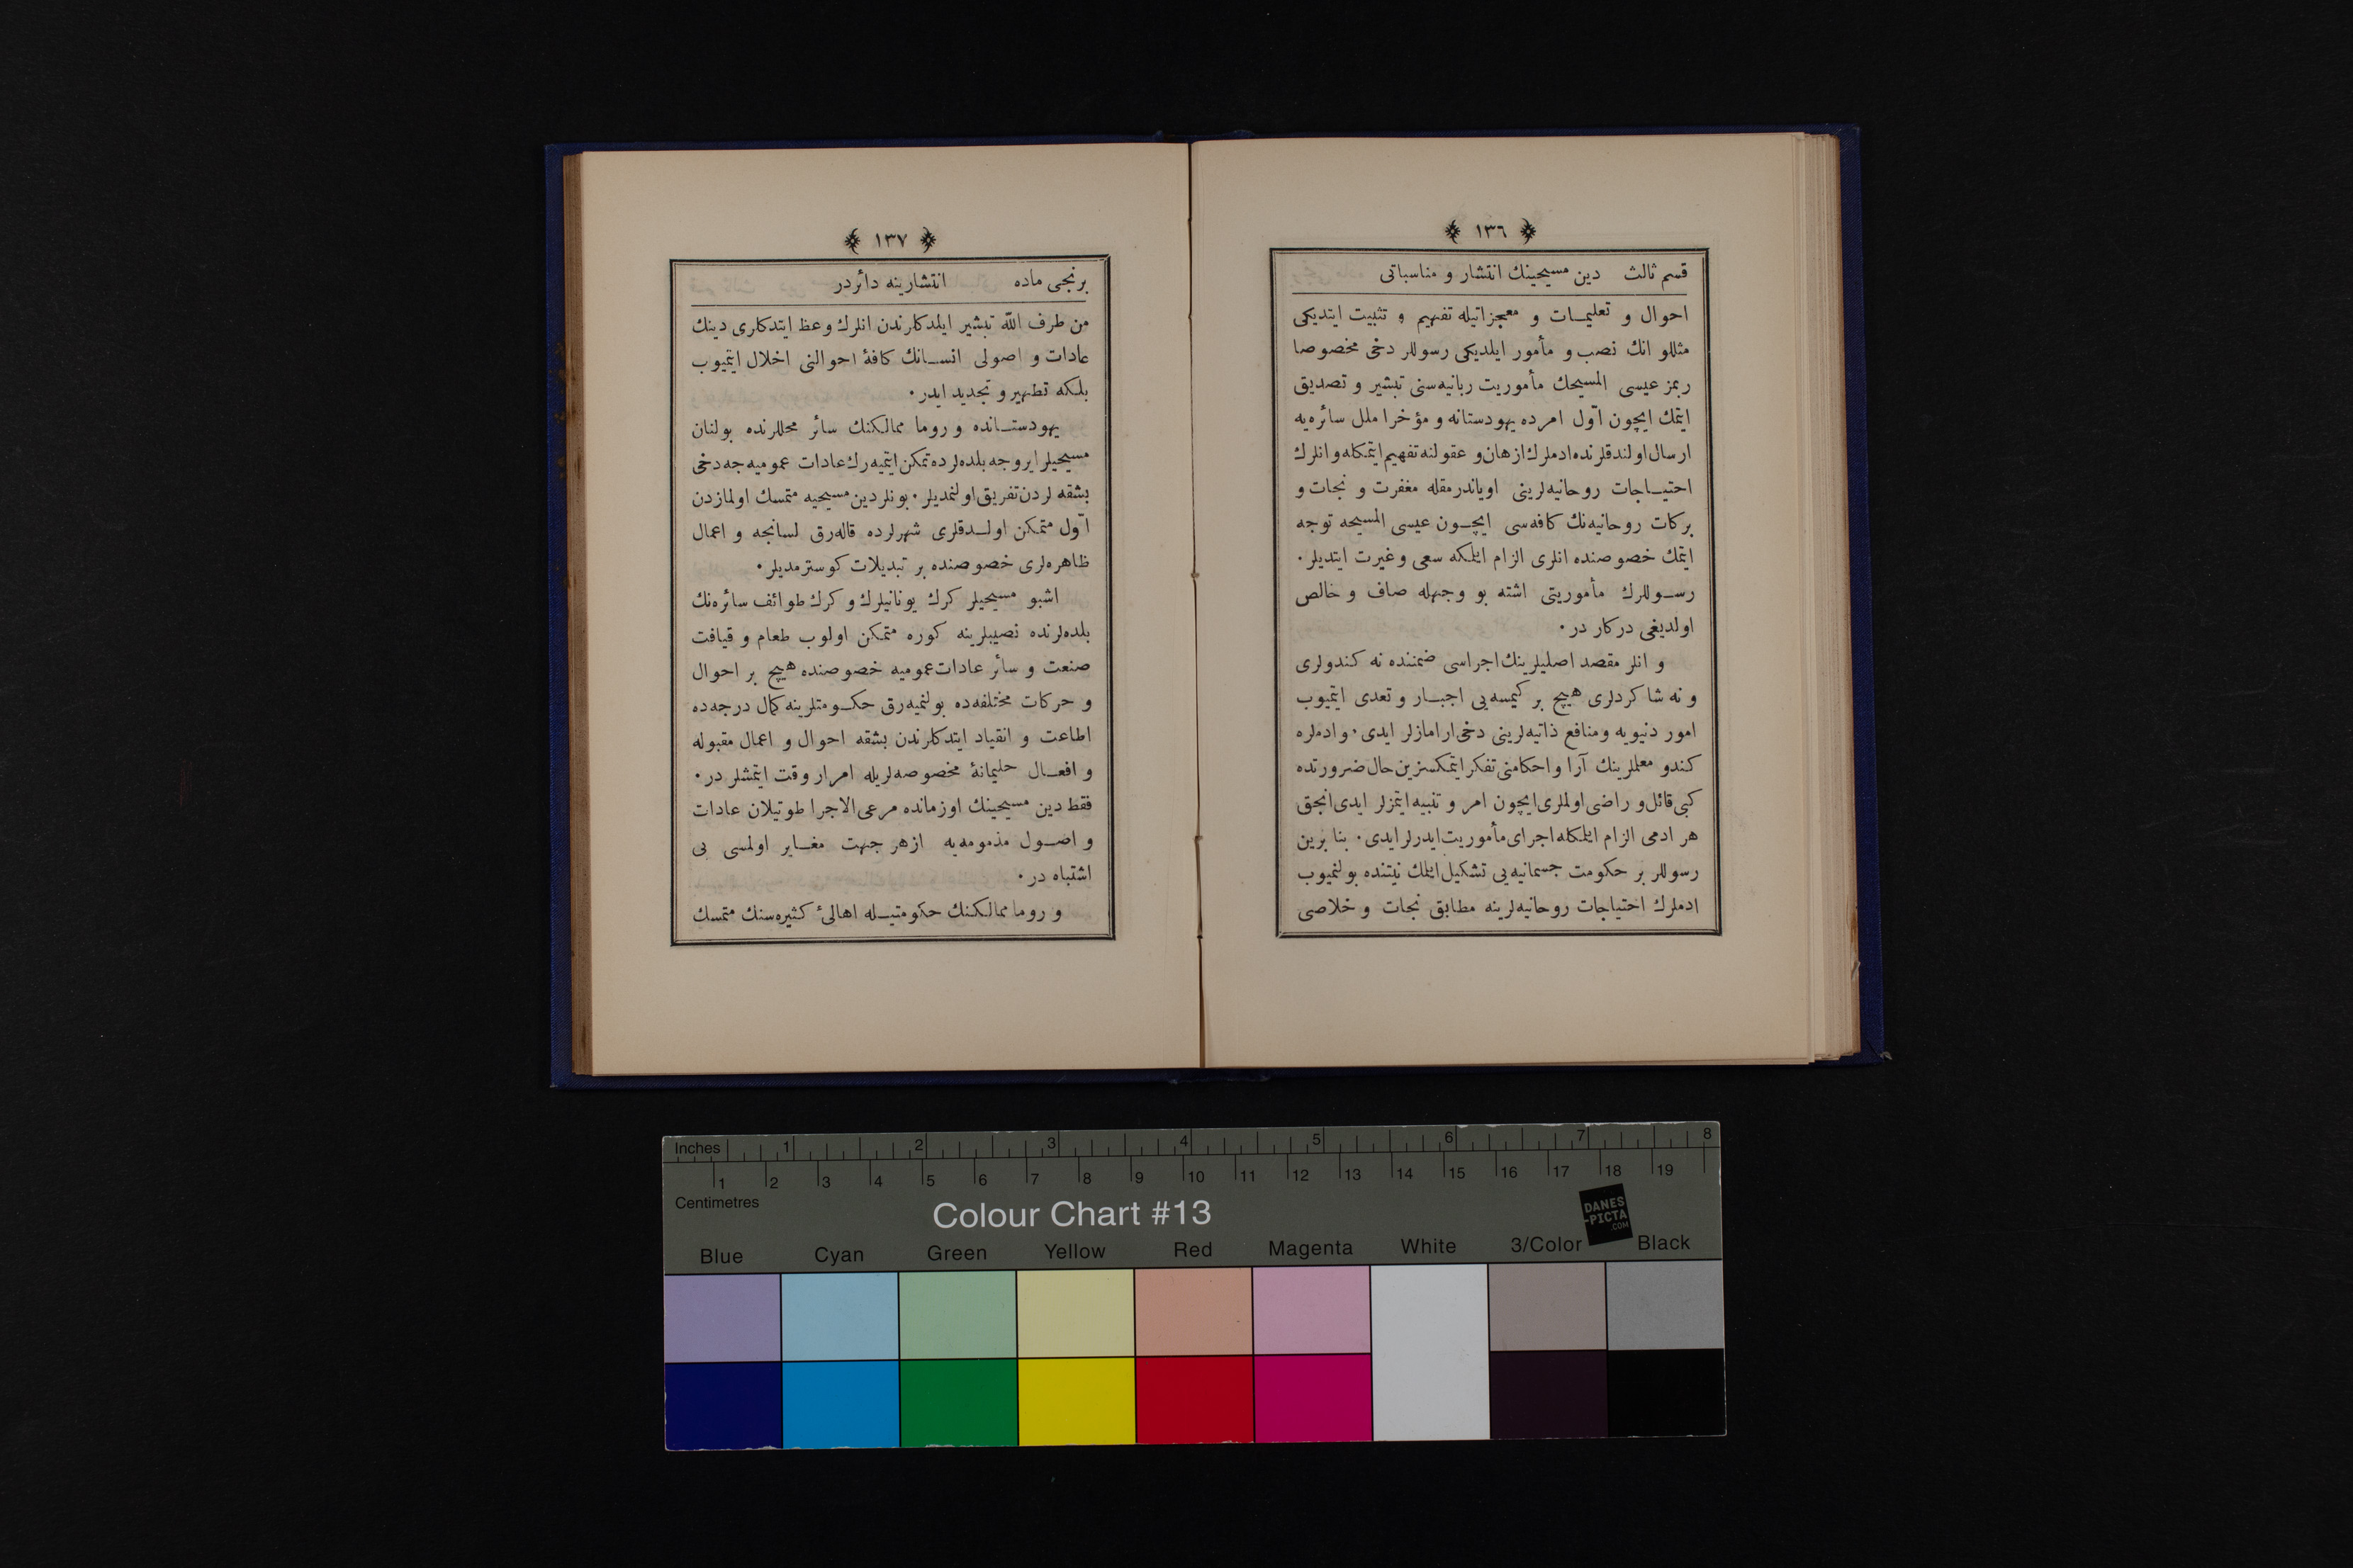 ﴿ ١٣٦ ﴾
قسم ثالث دین مسیحینك انتشار و مناسباتی
احوال و تعلیمات و معجزاتیله تفهیم و تثبیت ایتدیکی
مثللو انك نصب و مأمور ایلدیکی رسوللر دخی مخصوصا
ربمز عیسی المسیحك مأموریت ربانیه‌سنی تبشیر و تصدیق
ایتمك ایچون اوّل امرده یهودستانه و مؤخرا ملل سائره‌یه
ارسال اولندقلرنده ادملرك ازهان و عقولنه تفهیم ایتمکله و انلرك
احتیاجات روحانیه‌لرینی اویاندرمقله مغفرت و نجات و
برکات روحانیه‌نك کافه‌سی ایچون عیسی المسیحه توجه
ایتمك خصوصنده انلری الزام ایلمکه سعی و غیرت ایتدیلر.
رسوللرك مأموریتی اشته بو وجهله صاف و خالص
اولدیغی درکار در.
و انلر مقصد اصلیلرینك اجراسی ضمننده نه کندولری
و نه شاکردلری هیچ بر کیمسه‌یی اجبار و تعدی ایتمیوب
امور دنیویه و منافع ذاتیه‌لرینی دخی ارامازلر ایدی. و ادملره
کندو معلملرینك آرا و احکامنی تفکر ایتمکسزین حال ضرورتده
کبی قائل و راضی اولملری ایچون امر و تنبیه ایتمزلر ایدی انجق
هر ادمی الزام ایلمکله اجرای مأموریت ایدرلر ایدی. بنا برین
رسوللر بر حکومت جسمانیه‌یی تشکیل ایلمك نیتنده بولنمیوب
ادملرك احتیاجات روحانیه‌لرینه مطابق نجات و خلاصی
﴿ ١٣٧ ﴾
برنجی ماده انتشارینه دائردر
من طرف اللّه تبشیر ایلدکلرندن انلرك وعظ ایتدکلری دینك
عادات و اصولی انسانك کافهٔ احوالنی اخلال ایتمیوب
بلکه تطهیر و تجدید ایدر.
یهودستانده و روما ممالکنك سائر محللرنده بولنان
مسیحیلر ایروجه بلده‌لرده تمکن ایتمیه‌رك عادات عمومیه‌جه دخی
بشقه‌لردن تفریق اولنمدیلر. بونلر دین مسیحیه متمسك اولمازدن
اوّل متمکن اولدقلری شهرلرده قاله‌رق لسانجه و اعمال
ظاهره‌لری خصوصنده بر تبدیلات کوسترمدیلر.
اشبو مسیحیلر کرك یونانیلرك و کرك طوائف سائره‌نك
بلده‌لرنده نصیبلرینه کوره متمکن اولوب طعام و قیافت
صنعت و سائر عادات عمومیه خصوصنده هیچ بر احوال
و حرکات مختلفه‌ده بولنمیه‌رق حکومتلرینه کمال درجه‌ده
اطاعت و انقیاد ایتدکلرندن بشقه احوال و اعمال مقبوله
و افعال حلیمانهٔ مخصوصه‌لریله امرار وقت ایتمشلر در.
فقط دین مسیحینك اوزمانده مرعی الاجرا طوتیلان عادات
و اصول مذمومه‌یه ازهر جهت مغایر اولمسی بی
اشتباه در.
و روما ممالکنك حکومتیله اهالیٔ کثیره‌سنك متمسك
Inches 1 2 3 4 5 6 7 8
1 2 3 4 5 6 7 8 9 10 11 12 13 14 15 16 17 18 19
Centimetres
Colour Chart #13
DANES
-PICTA
.COM
Blue Cyan Green Yellow Red Magenta White 3/Color Black